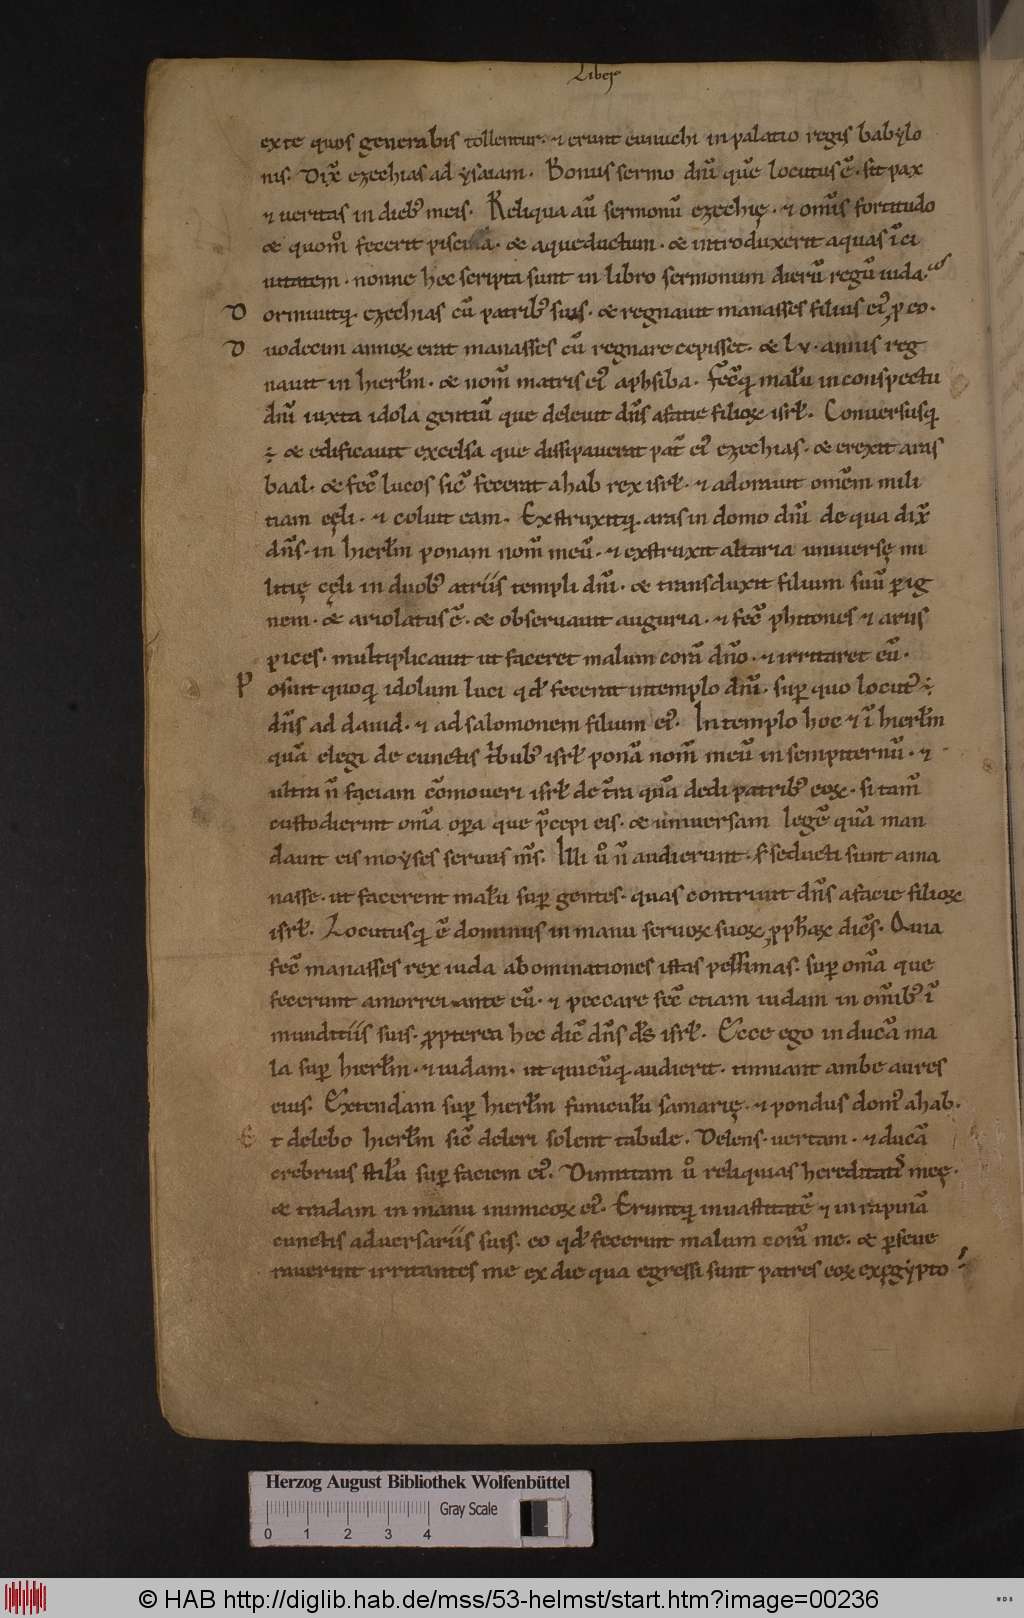 Liber
ex te quos generabis tollentur. ⁊ erunt eunuchi in palatio regis babẏlo
nis. Dix̄ ezechias ad ẏsaiam. Bonus sermo dn̄i quē locutus ē. sit pax
⁊ ueritas in dieb; meis. Reliqua aū sermonū ezechię. ⁊ om̄is fortitudo
& quom̊ fecerit piscinā. & aqueductum. & introduxerit aquas ī ci
uitatem. nonne hec scripta sunt in libro sermonum dierū regū iuda.
D ormiuitq; ezechias cū patrib; suis. & regnauit manasses filius ei; ꝓ eo.
D uodecim annoꝝ erat manasses cū regnare cepisset. & lv. annis reg
nauit in hierłm. & nom̄ matris ei; aphsiba. Fec̄q; malū in conspectu
dn̄i iuxta idola gentiū que deleuit dn̄s a facie filioꝝ isrł. Conuersusq;
÷ & edificauit excelsa que dissipauerat pat̄ ei; ezechias. & erexit aras
baal. & fec̄ lucos sic̄ fecerat ahab rex isrł. ⁊ adorauit omēm mili
tiam cęli. ⁊ coluit eam. Exstruxitq; aras in domo dn̄i de qua dix̄
dn̄s. in hierłm ponam nom̄ meū. ⁊ exstruxit altaria uniuersę mi
litię cęli in duob; atriis templi dn̄i. & transduxit filium suū ꝑ ig
nem. & ariolatus ē. & obseruauit auguria. ⁊ fec̄ phitones ⁊ arus
pices. multiplicauit ut faceret malum corā dn̄o. ⁊ irritaret eū.
P osuit quoq; idolum luci qđ fecerat in templo dn̄i. suꝑ quo locut; ÷
dn̄s ad dauid. ⁊ ad salomonem filium ei;. In templo hoc ⁊ ī hierłm
quā elegi de cunctis t̄bub; isrł ponā nom̄ meū in sempiternū. ⁊
ultra n̄ faciam cōmoueri isrł de t̄ra quā dedi patrib; eoꝝ. si tam̄
custodierint om̄a oꝑa que p̄cepi eis. & uniuersam legē quā man
dauit eis moẏses seruus m̄s. Illi u̇ n̄ audierunt. s; seducti sunt a ma
nasse. ut facerent malū suꝑ gentes. quas contriuit dn̄s a facie filioꝝ
isrł. Locutusq; ē dominus in manu seruoꝝ suoꝝ ꝓphaꝝ dicēs. Quia
fec̄ manasses rex iuda abominationes istas pessimas. suꝑ om̄a que
fecerunt amorrei ante eū. ⁊ peccare fec̄ etiam iudam in om̄ib; ī
munditiis suis. ꝓpterea hec dic̄ dn̄s d̄s isrł. Ecce ego inducā ma
la suꝑ hierłm. ⁊ iudam. ut quicūq; audierit. tinniant ambe aures
eius. Extendam suꝑ hierłm funiculū samarię. ⁊ pondus dom; ahab.
E t delebo hierłm sic̄ deleri solent tabule. Delens. uertam. ⁊ ducā
crebrius stilū suꝑ faciem ei;. Dimittam u̇ reliquias hereditatis meę.
& tradam in manu inimicoꝝ ei;. Eruntq; in uastitatē ⁊ in rapinā
cunctis aduersariis suis. eo qđ fecerint malum corā me. & ꝑseue
rauerint irritantes me ex die qua egressi sunt patres eoꝝ ex ęgẏpto
Herzog August Bibliothek Wolfenbüttel
Gray Scale
0 1 2 3 4
© HAB http://diglib.hab.de/mss/53-helmst/start.htm?image=00236